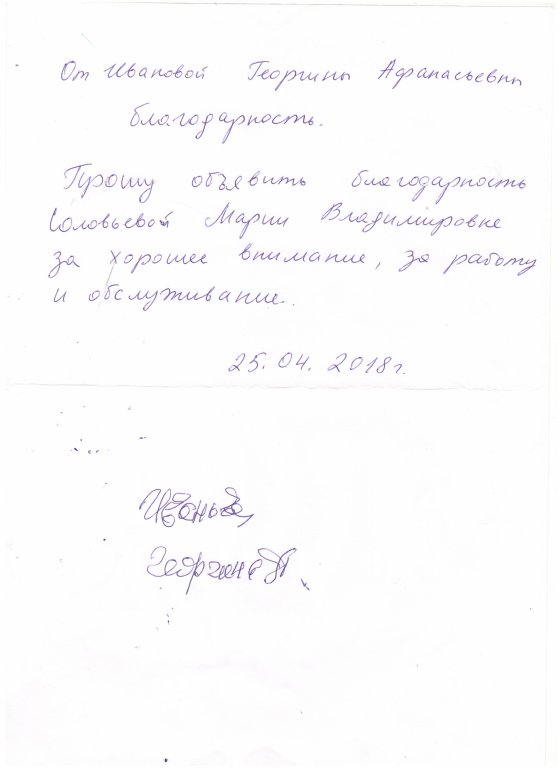 От Ивановой Георгины Афанасьевны
благодарность.
Прошу объявить благодарность
Соловьевой Марии Владимировне
за хорошее внимание, за работу
и обслуживание.
25.04.2018г.